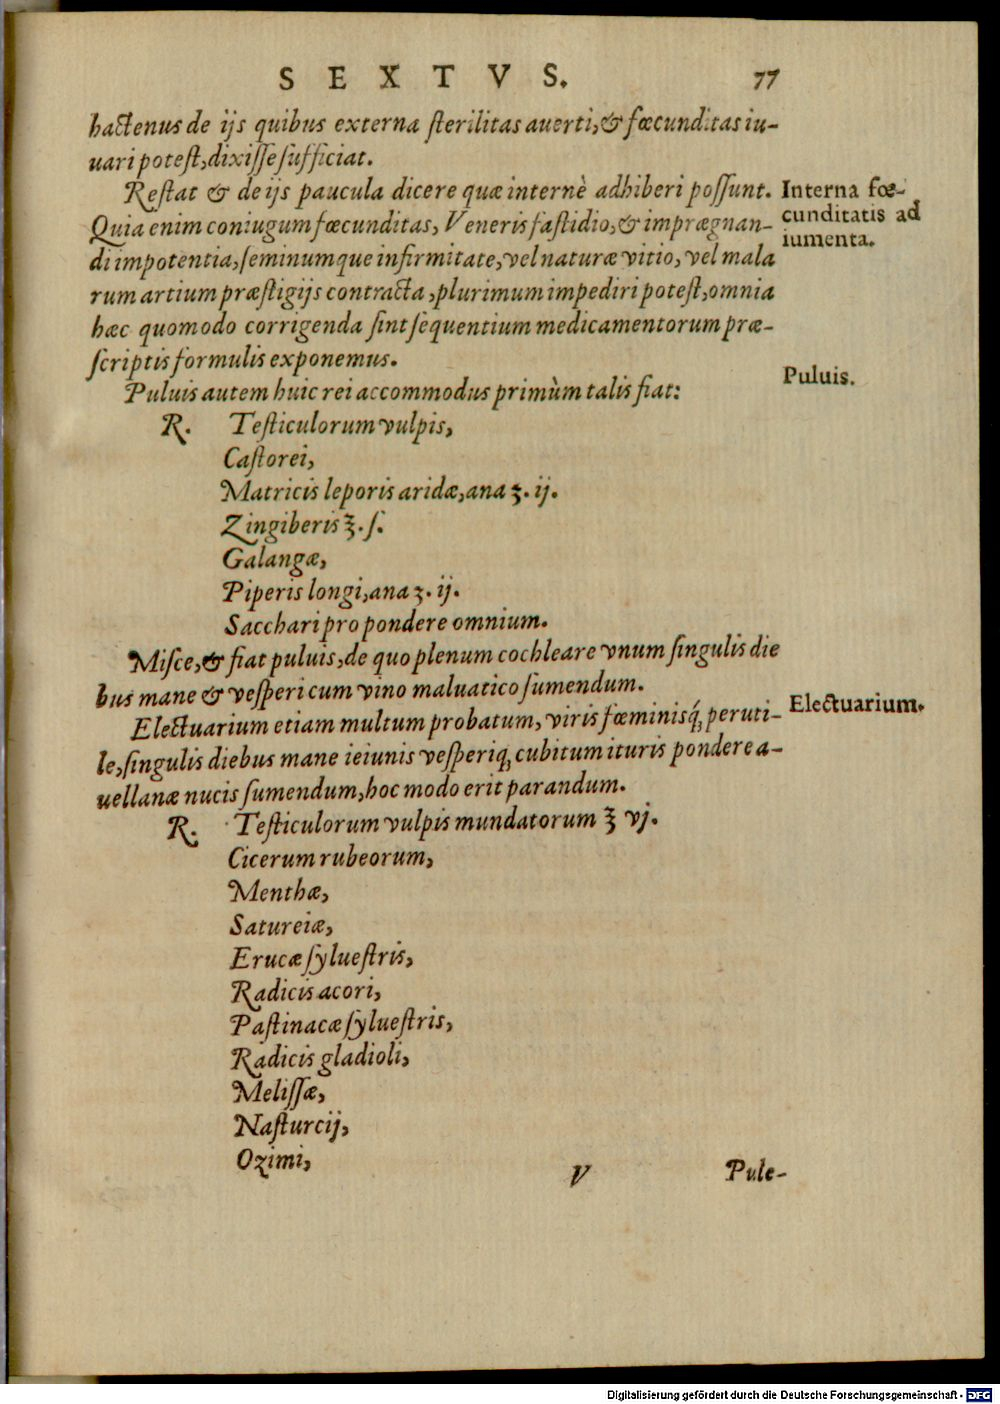 SEXTVS. 77
hactenus de ijs quibus externa sterilitas auerti, & fœcunditas iu-
uari potest, dixisse sufficiat.
Restat & de ijs paucula dicere quæ internè adhiberi possunt.
Interna fœ-
cunditatis ad
iumenta.
Quia enim coniugum fœcunditas, Veneris fastidio, & imprægnan-
di impotentia, seminumque infirmitate, vel naturæ vitio, vel mala
rum artium præstigijs contracta, plurimum impediri potest, omnia
hæc quomodo corrigenda sint sequentium medicamentorum præ-
scriptis formulis exponemus.
Puluis.
Puluis autem huic rei accommodus primùm talis fiat:
R. Testiculorum vulpis,
Castorei,
Matricis leporis aridæ, ana ʒ. ij.
Zingiberis ℥. ſ.
Galangæ,
Piperis longi, ana ʒ. ij.
Sacchari pro pondere omnium.
Misce, & fiat puluis, de quo plenum cochleare vnum singulis die
bus mane & vesperi cum vino maluatico sumendum.
Electuarium.
Electuarium etiam multum probatum, viris fœminisq́; peruti-
le, singulis diebus mane ieiunis vesperiq; cubitum ituris pondere a-
uellanæ nucis sumendum, hoc modo erit parandum.
R. Testiculorum vulpis mundatorum ℥ vj.
Cicerum rubeorum,
Menthæ,
Satureiæ,
Erucæ syluestris,
Radicis acori,
Pastinacæ syluestris,
Radicis gladioli,
Melissæ,
Nasturcij,
Ozimi,
V Pule-
Digitalisierung gefördert durch die Deutsche Forschungsgemeinschaft - DFG